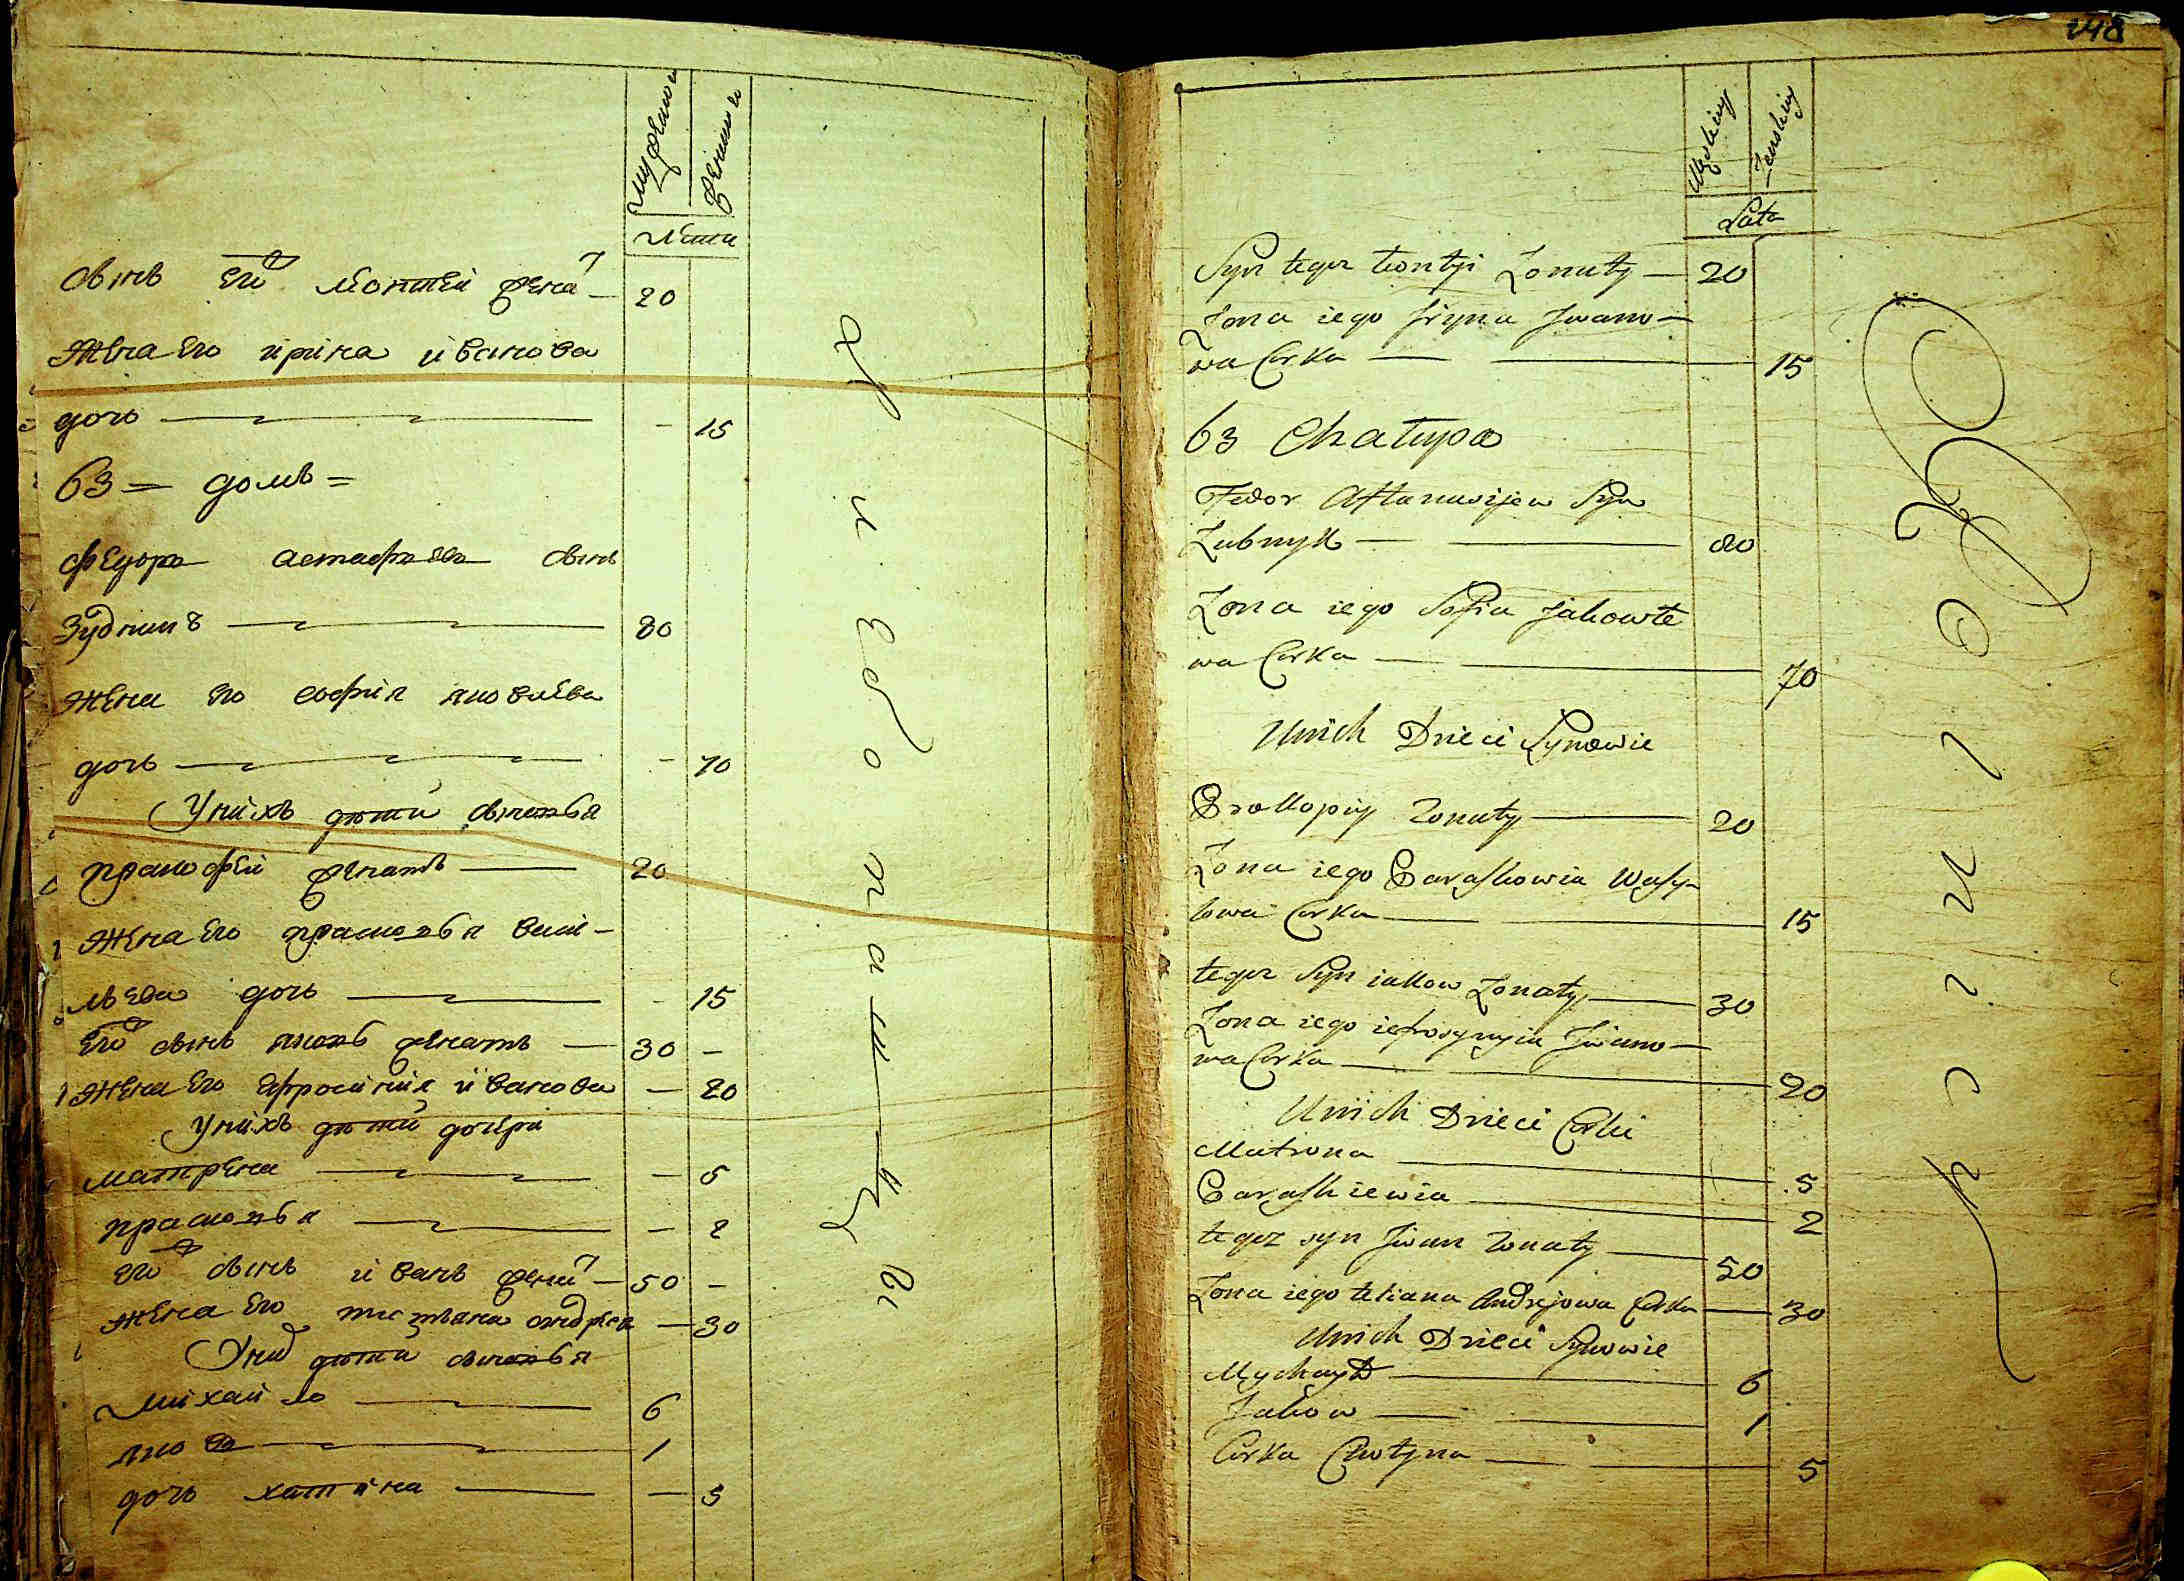 мужеска
женска
Лета
сынъ его леонтей жена
20
жена его ирина иванова
дочь
- 15
63 = домъ =
федоръ астафьевъ сынъ
Зубникъ
80
жена его софия яковлева
дочь
- 70
Унихъ дети сыновья
прокофей женатъ
20
жена его прасковья васи-
льева дочь
- 15
его сынъ яковъ женатъ
30 -
жена его ефросиния иванова
- 20
Унихъ дети дочери
матрена
- 5
прасковья
- 2
его сынъ иванъ жена
50 -
жена его татьяна андрея
- 30
Унихъ дети сыновья
михайло
6
яковъ
1
дочь хатина
- 5
248
Męskiey
Zenskiey
Lata
Syn tegoz Leontji Zonaty - 20
Zona iego Jryna Jwano-
wa Corka 15
63 Chałupa
Fedor Astanasijew Syn
Zubnyk 80
Zona iego Sofia Jakowle
wa Corka 70
Unich Dzieci Synowie
Prokopiy Zonaty 20
Zona iego Paraskowia Wasy-
lowa Corka 15
tegoz Syn iakow Zonaty 30
Zona iego iefrosynyia Jwano-
wa Corka 20
Unich Dzieci Corki
Matrona 5
Paraskiewia 2
tegoz syn Jwan Zonaty 50
Zona iego tetiana Andrejowa Corka 30
Unich Dzieci Synowie
Mychayło 6
Jakow 1
Corka Chotyna 5